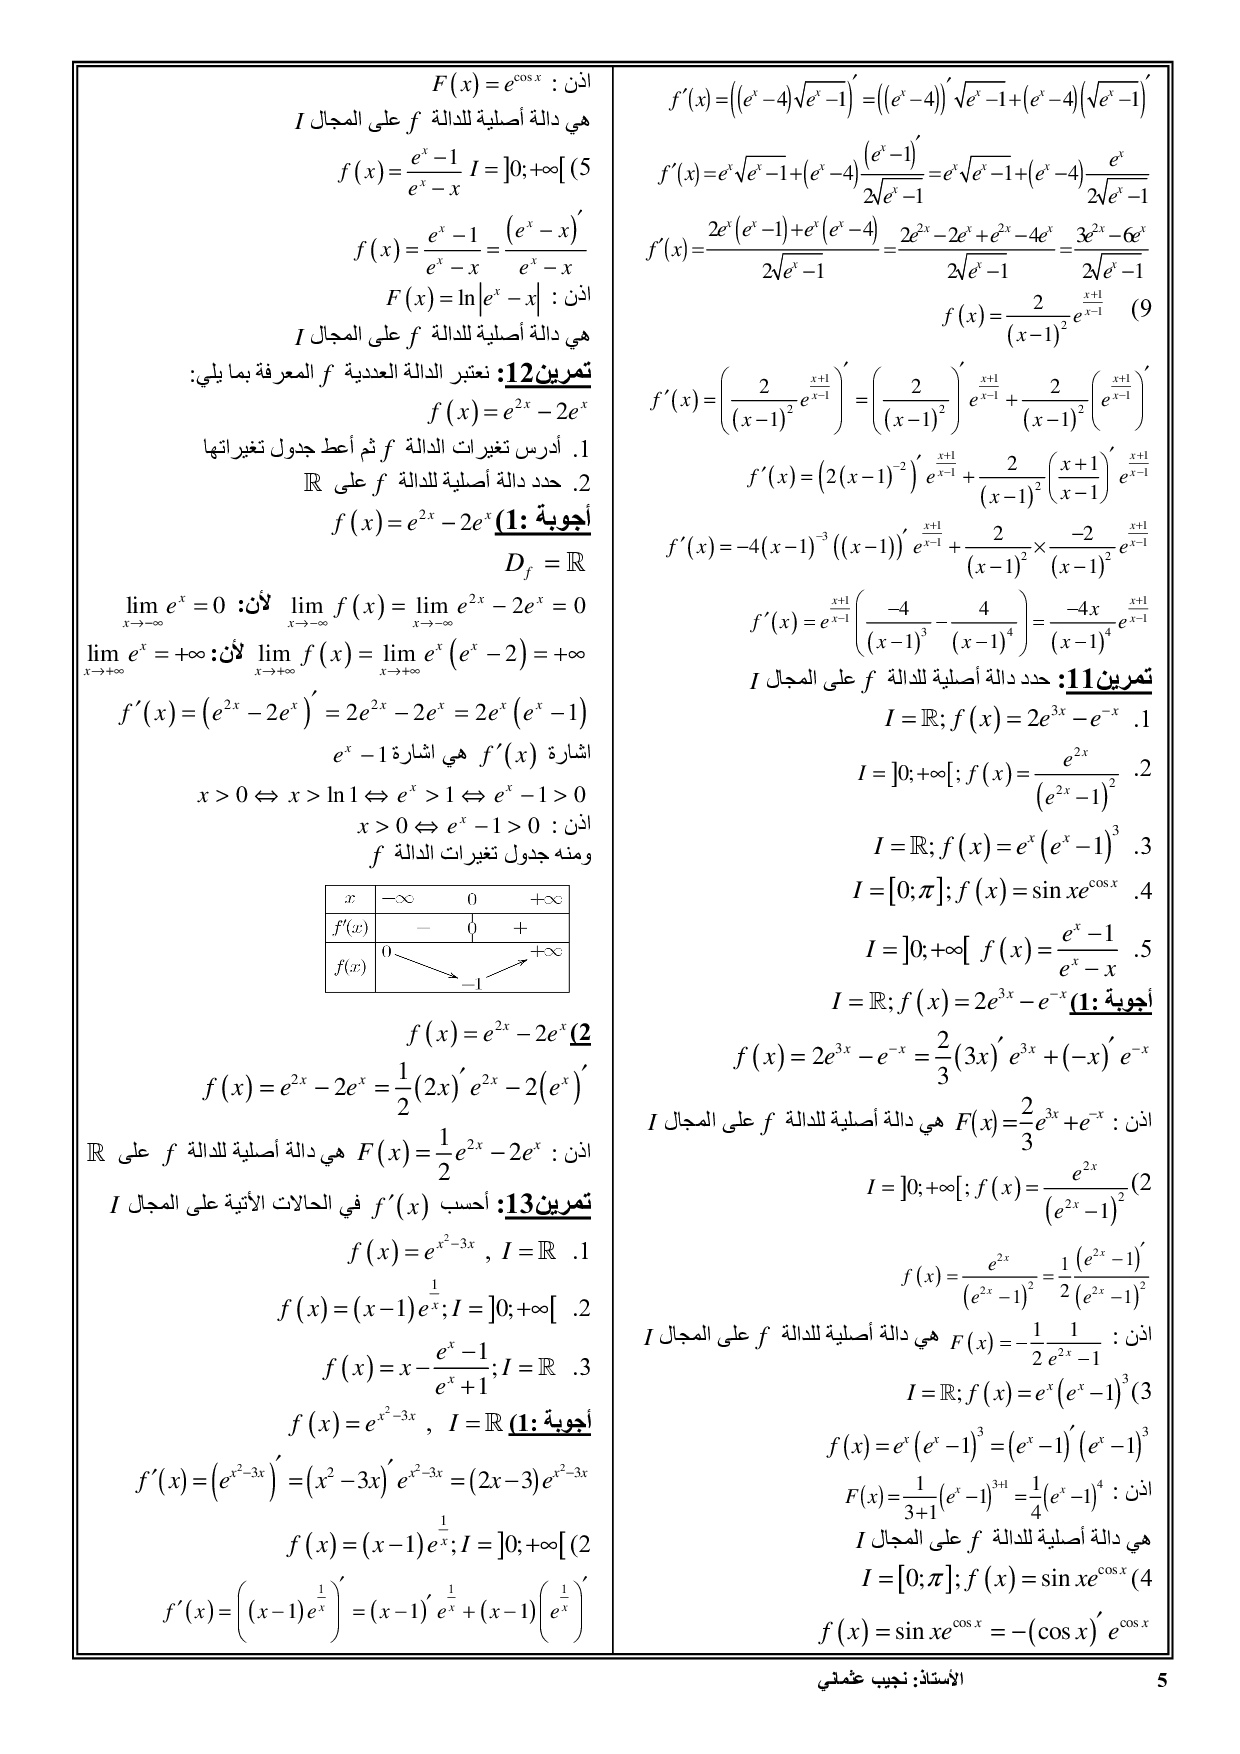 f′(x) = ((eˣ − 4)√(eˣ − 1))′ = ((eˣ − 4))′ √(eˣ − 1) + (eˣ − 4)(√(eˣ − 1))′
f′(x) = eˣ√(eˣ − 1) + (eˣ − 4) (eˣ − 1)′/(2√(eˣ − 1)) = eˣ√(eˣ − 1) + (eˣ − 4) eˣ/(2√(eˣ − 1))
f′(x) = (2eˣ(eˣ − 1) + eˣ(eˣ − 4))/(2√(eˣ − 1)) = (2e²ˣ − 2eˣ + e²ˣ − 4eˣ)/(2√(eˣ − 1)) = (3e²ˣ − 6eˣ)/(2√(eˣ − 1))
9) f(x) = 2/(x − 1)² e^((x+1)/(x−1))
f′(x) = (2/(x − 1)² e^((x+1)/(x−1)))′ = (2/(x − 1)²)′ e^((x+1)/(x−1)) + 2/(x − 1)² (e^((x+1)/(x−1)))′
f′(x) = (2(x − 1)⁻²)′ e^((x+1)/(x−1)) + 2/(x − 1)² ((x + 1)/(x − 1))′ e^((x+1)/(x−1))
f′(x) = −4(x − 1)⁻³ ((x − 1))′ e^((x+1)/(x−1)) + 2/(x − 1)² × −2/(x − 1)² e^((x+1)/(x−1))
f′(x) = e^((x+1)/(x−1)) (−4/(x − 1)³ − 4/(x − 1)⁴) = −4x/(x − 1)⁴ e^((x+1)/(x−1))
تمرين11: حدد دالة أصلية للدالة f على المجال I
1. I = ℝ; f(x) = 2e³ˣ − e⁻ˣ
2. I = ]0;+∞[ ; f(x) = e²ˣ/(e²ˣ − 1)²
3. I = ℝ; f(x) = eˣ(eˣ − 1)³
4. I = [0;π]; f(x) = sin xe^(cos x)
5. I = ]0;+∞[ f(x) = (eˣ − 1)/(eˣ − x)
أجوبة :1) I = ℝ; f(x) = 2e³ˣ − e⁻ˣ
f(x) = 2e³ˣ − e⁻ˣ = 2/3 (3x)′ e³ˣ + (−x)′ e⁻ˣ
اذن : F(x) = 2/3 e³ˣ + e⁻ˣ هي دالة أصلية للدالة f على المجال I
2) I = ]0;+∞[ ; f(x) = e²ˣ/(e²ˣ − 1)²
f(x) = e²ˣ/(e²ˣ − 1)² = 1/2 (e²ˣ − 1)′/(e²ˣ − 1)²
اذن : F(x) = −1/2 1/(e²ˣ − 1) هي دالة أصلية للدالة f على المجال I
3) I = ℝ; f(x) = eˣ(eˣ − 1)³
f(x) = eˣ(eˣ − 1)³ = (eˣ − 1)′(eˣ − 1)³
اذن : F(x) = 1/(3+1) (eˣ − 1)³⁺¹ = 1/4 (eˣ − 1)⁴
هي دالة أصلية للدالة f على المجال I
4) I = [0;π]; f(x) = sin xe^(cos x)
f(x) = sin xe^(cos x) = −(cos x)′ e^(cos x)
اذن : F(x) = e^(cos x)
هي دالة أصلية للدالة f على المجال I
5) I = ]0;+∞[ f(x) = (eˣ − 1)/(eˣ − x)
f(x) = (eˣ − 1)/(eˣ − x) = (eˣ − x)′/(eˣ − x)
اذن : F(x) = ln|eˣ − x|
هي دالة أصلية للدالة f على المجال I
تمرين12: نعتبر الدالة العددية f المعرفة بما يلي:
f(x) = e²ˣ − 2eˣ
1. أدرس تغيرات الدالة f ثم أعط جدول تغيراتها
2. حدد دالة أصلية للدالة f على ℝ
أجوبة :1) f(x) = e²ˣ − 2eˣ
D_f = ℝ
lim_(x→−∞) f(x) = lim_(x→−∞) e²ˣ − 2eˣ = 0 لأن: lim_(x→−∞) eˣ = 0
lim_(x→+∞) f(x) = lim_(x→+∞) eˣ(eˣ − 2) = +∞ لأن: lim_(x→+∞) eˣ = +∞
f′(x) = (e²ˣ − 2eˣ)′ = 2e²ˣ − 2eˣ = 2eˣ(eˣ − 1)
اشارة f′(x) هي اشارة eˣ − 1
x > 0 ⇔ x > ln 1 ⇔ eˣ > 1 ⇔ eˣ − 1 > 0
اذن : x > 0 ⇔ eˣ − 1 > 0
ومنه جدول تغيرات الدالة f
x −∞ 0 +∞
f′(x) − 0 +
f(x) 0 −1 +∞
2) f(x) = e²ˣ − 2eˣ
f(x) = e²ˣ − 2eˣ = 1/2 (2x)′ e²ˣ − 2(eˣ)′
اذن : F(x) = 1/2 e²ˣ − 2eˣ هي دالة أصلية للدالة f على ℝ
تمرين13: أحسب f′(x) في الحالات الأتية على المجال I
1. f(x) = e^(x²−3x) , I = ℝ
2. f(x) = (x − 1)e^(1/x); I = ]0;+∞[
3. f(x) = x − (eˣ − 1)/(eˣ + 1); I = ℝ
أجوبة :1) f(x) = e^(x²−3x) , I = ℝ
f′(x) = (e^(x²−3x))′ = (x² − 3x)′ e^(x²−3x) = (2x − 3)e^(x²−3x)
2) f(x) = (x − 1)e^(1/x); I = ]0;+∞[
f′(x) = ((x − 1)e^(1/x))′ = (x − 1)′ e^(1/x) + (x − 1)(e^(1/x))′
الأستاذ: نجيب عثماني
5